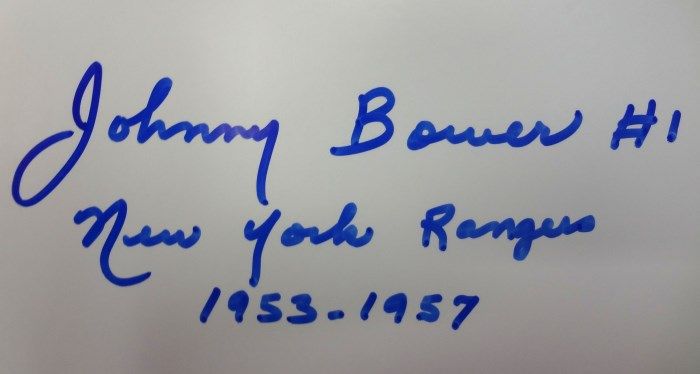 Johnny Bower #1
New York Rangers
1953-1957